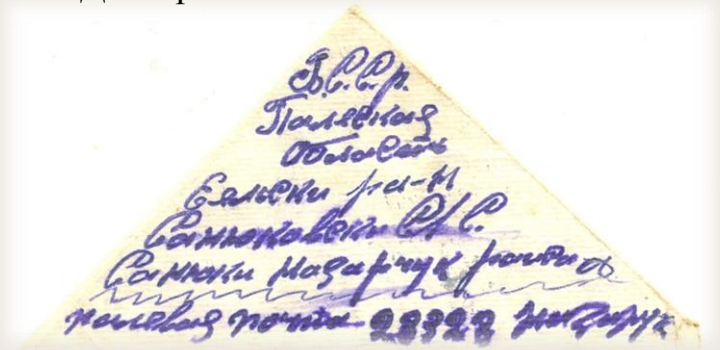 Б.С.С.р.
Палеская
Область
Ельски ра-н
Санюковски С/С.
Санюки Назарчук
палевая почта